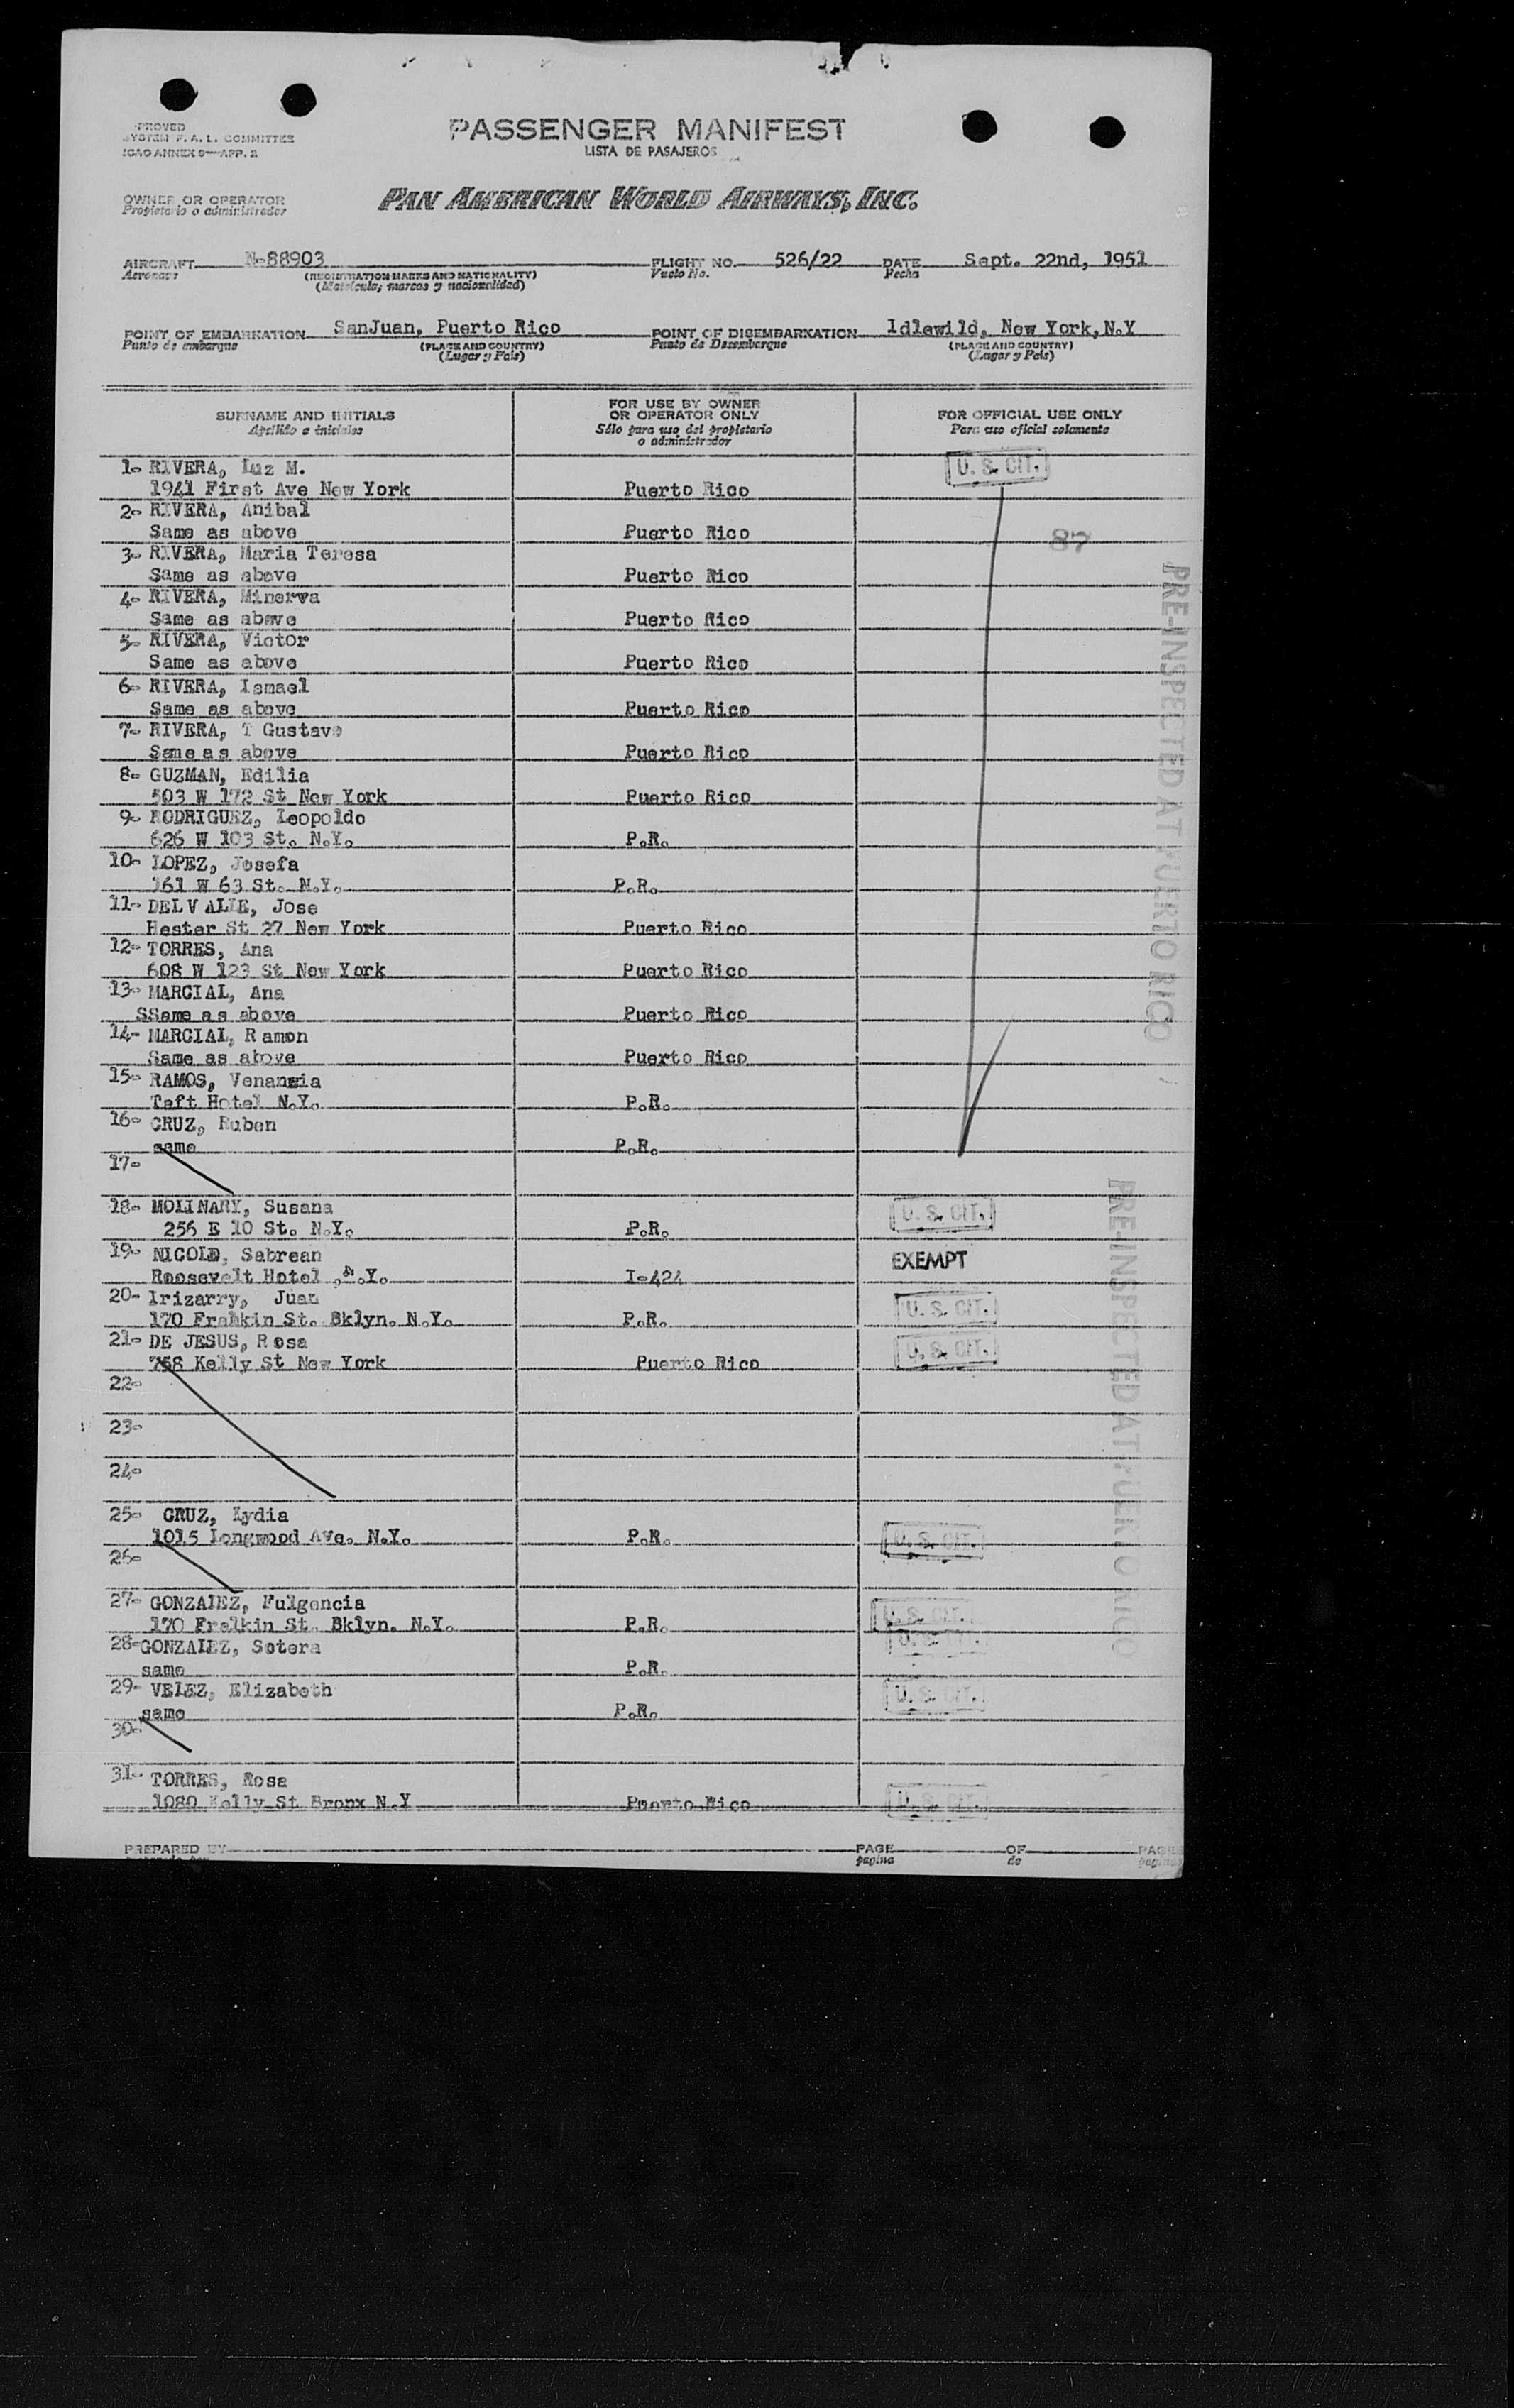 PROVED
SYSTEM F. A. L. COMMITTEE
ICAO ANNEX 9—APP. 2
PASSENGER MANIFEST
LISTA DE PASAJEROS
OWNER OR OPERATOR
Propietario o administrador
PAN AMERICAN WORLD AIRWAYS, INC.
AIRCRAFT N-88903 FLIGHT NO. 526/22 DATE Sept. 22nd, 1951
Aeronave (REGISTRATION MARKS AND NATIONALITY) Vuelo No. Fecha
(Matricula, marcas y nacionalidad)
POINT OF EMBARKATION SanJuan, Puerto Rico POINT OF DISEMBARKATION Idlewild, New York, N.Y
Punto de embarque (PLACE AND COUNTRY) Punto de Desembarque (PLACE AND COUNTRY)
(Lugar y Pais) (Lugar y Pais)
SURNAME AND INITIALS
Apellido e iniciales
FOR USE BY OWNER
OR OPERATOR ONLY
Sólo para uso del propietario
o administrador
FOR OFFICIAL USE ONLY
Para uso oficial solamente
1- RIVERA, Luz M. U. S. CIT.
1941 First Ave New York Puerto Rico
2- RIVERA, Anibal
Same as above Puerto Rico 87
3- RIVERA, Maria Teresa
Same as above Puerto Rico
4- RIVERA, Minerva
Same as above Puerto Rico
5- RIVERA, Victor
Same as above Puerto Rico
6- RIVERA, Ismael
Same as above Puerto Rico
7- RIVERA, T Gustavo
Same as above Puerto Rico
8- GUZMAN, Edilia
503 W 172 St New York Puerto Rico
9- RODRIGUEZ, Leopoldo
626 W 103 St. N.Y. P.R.
10- LOPEZ, Josefa
161 W 63 St. N.Y. P.R.
11- DELV ALLE, Jose
Hester St 27 New York Puerto Rico
12- TORRES, Ana
608 W 123 St New York Puerto Rico
13- MARCIAL, Ana
SSame as above Puerto Rico
14- MARCIAL, Ramon
Same as above Puerto Rico
15- RAMOS,
Taft Hotel N.Y. P.R.
16- CRUZ, Ruben
same P.R.
17-
18- MOLINARY, Susana U. S. CIT.
256 E 10 St. N.Y. P.R.
19- NICOLE, Sabrean EXEMPT
Roosevelt Hotel , N.Y. I-424
20- Irizarry, Juan U. S. CIT.
170 Frahkin St. Bklyn. N.Y. P.R.
21- DE JESUS, Rosa U. S. CIT.
758 Kelly St New York Puerto Rico
22-
23-
24-
25- CRUZ, Lydia
1015 Longwood Ave. N.Y. P.R. U. S. CIT.
26-
27- GONZALEZ, Fulgencia U. S. CIT.
170 Fralkin St. Bklyn. N.Y. P.R.
28-GONZALEZ, Sotera U. S. CIT.
same P.R.
29- VELEZ, Elizabeth U. S. CIT.
same P.R.
30-
31- TORRES, Rosa
1080 Kelly St Bronx N.Y Puerto Rico U. S. CIT.
PREPARED BY PAGE OF PAGES
pagina de paginas
PRE-INSPECTED AT PUERTO RICO
PRE-INSPECTED AT PUERTO RICO